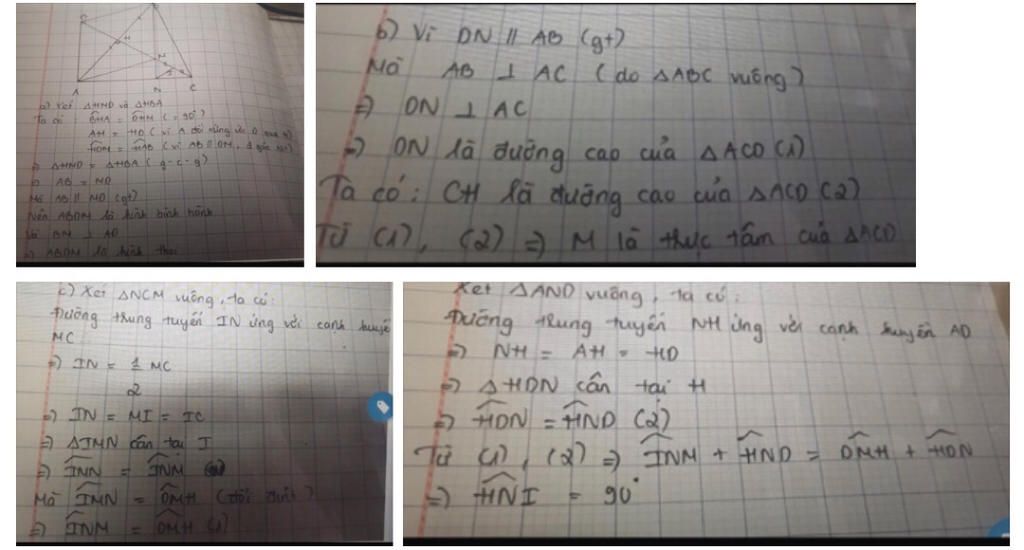 B
H
M
A
N
C
a) Xét ΔHMD và ΔHBA
Ta có BHA = DHM (= 90°)
AH = HD (vì A đối xứng với D qua H)
HDM = HAB (vì AB // DM, 2 góc slt)
=) ΔHMD = ΔHBA (g-c-g)
=) AB = MD
Mà AB // MD (gt)
Nên ABDM là hình bình hành
Mà BM ⊥ AD
=) ABDM là hình thoi
b) Vì DN // AB (gt)
Mà AB ⊥ AC (do ΔABC vuông)
=) DN ⊥ AC
=) DN là đường cao của ΔACD (1)
Ta có: CH là đường cao của ΔACD (2)
Từ (1), (2) =) M là trực tâm của ΔACD
c) Xét ΔNCM vuông, ta có:
Đường trung tuyến IN ứng với cạnh huyền
MC
=) IN = 1/2 MC
=) IN = MI = IC
=) ΔIMN cân tại I
=) IMN = INM
Mà IMN = DMH (đối đỉnh)
=) INM = DMH (1)
Xét ΔAND vuông, ta có:
Đường trung tuyến NH ứng với cạnh huyền AD
=) NH = AH = HD
=) ΔHDN cân tại H
=) HDN = HND (2)
Từ (1), (2) =) INM + HND = DMH + HDN
=) HNI = 90°